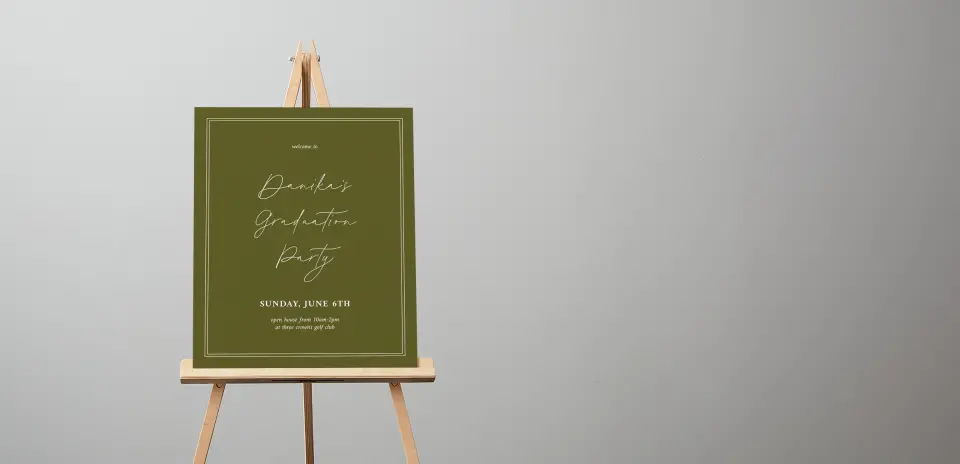 welcome to
Danika's
Graduation
Party
SUNDAY, JUNE 6TH
open house from 10am-2pm
at three crowns golf club